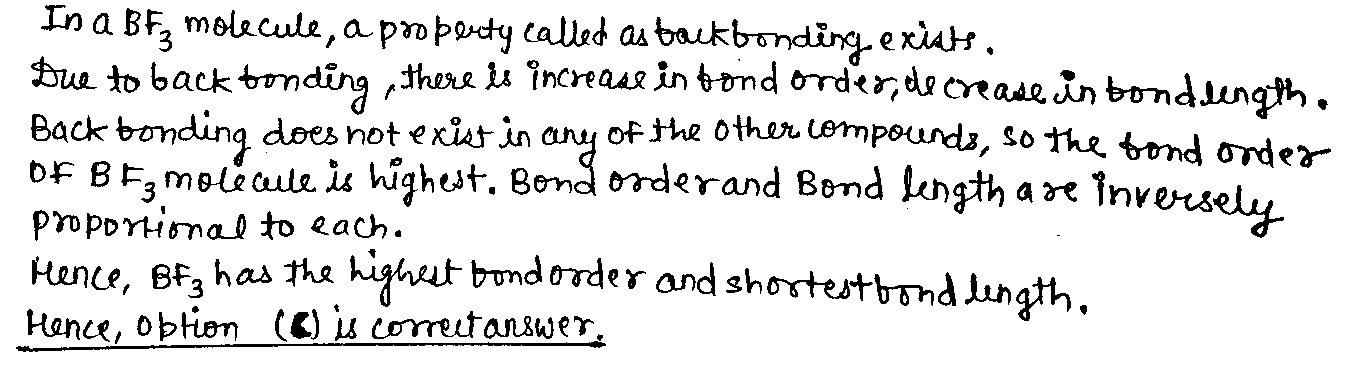 In a BF₃ molecule, a property called as backbonding exists.
Due to back bonding, there is increase in bond order, decrease in bond length.
Back bonding does not exist in any of the other compounds, so the bond order
OF BF₃ molecule is highest. Bond order and Bond length are inversely
proportional to each.
Hence, BF₃ has the highest bond order and shortest bond length.
Hence, option (C) is correct answer.